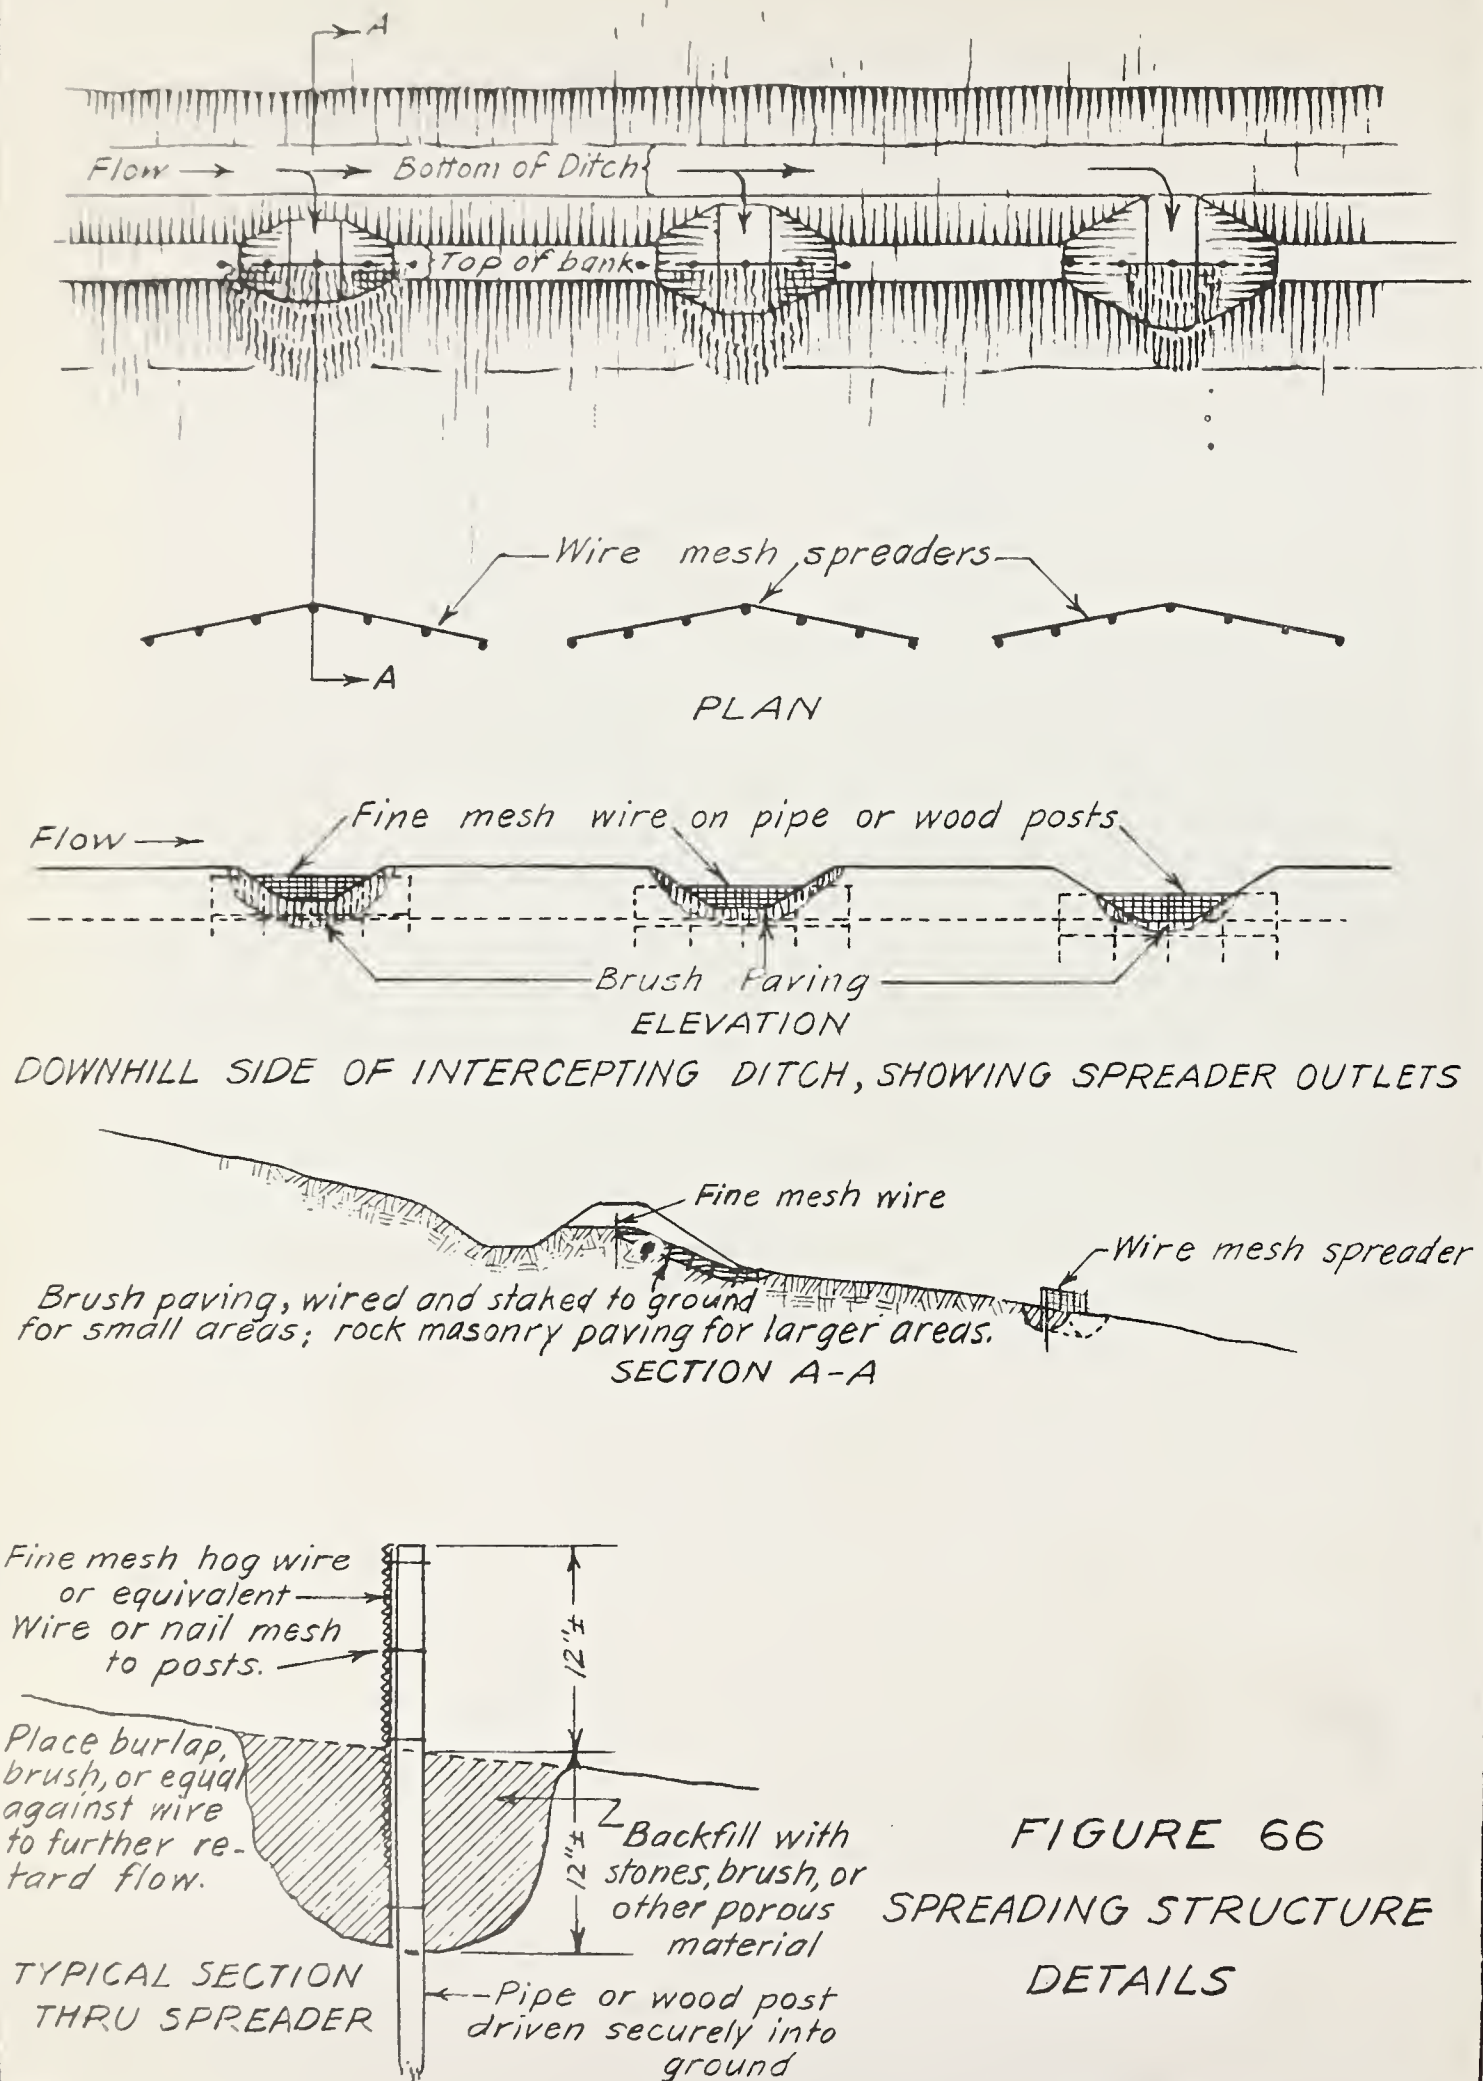 A
Flow
Bottom of Ditch
Top of bank
Wire mesh spreaders
A
PLAN
Fine mesh wire on pipe or wood posts
Flow
Brush Paving
ELEVATION
DOWNHILL SIDE OF INTERCEPTING DITCH, SHOWING SPREADER OUTLETS
Fine mesh wire
Wire mesh spreader
Brush paving, wired and staked to ground
for small areas; rock masonry paving for larger areas.
SECTION A-A
Fine mesh hog wire
or equivalent
Wire or nail mesh
to posts.
12"±
Place burlap,
brush, or equal
against wire
to further re-
tard flow.
12"±
Backfill with
stones, brush, or
other porous
material
TYPICAL SECTION
THRU SPREADER
Pipe or wood post
driven securely into
ground
FIGURE 66
SPREADING STRUCTURE
DETAILS